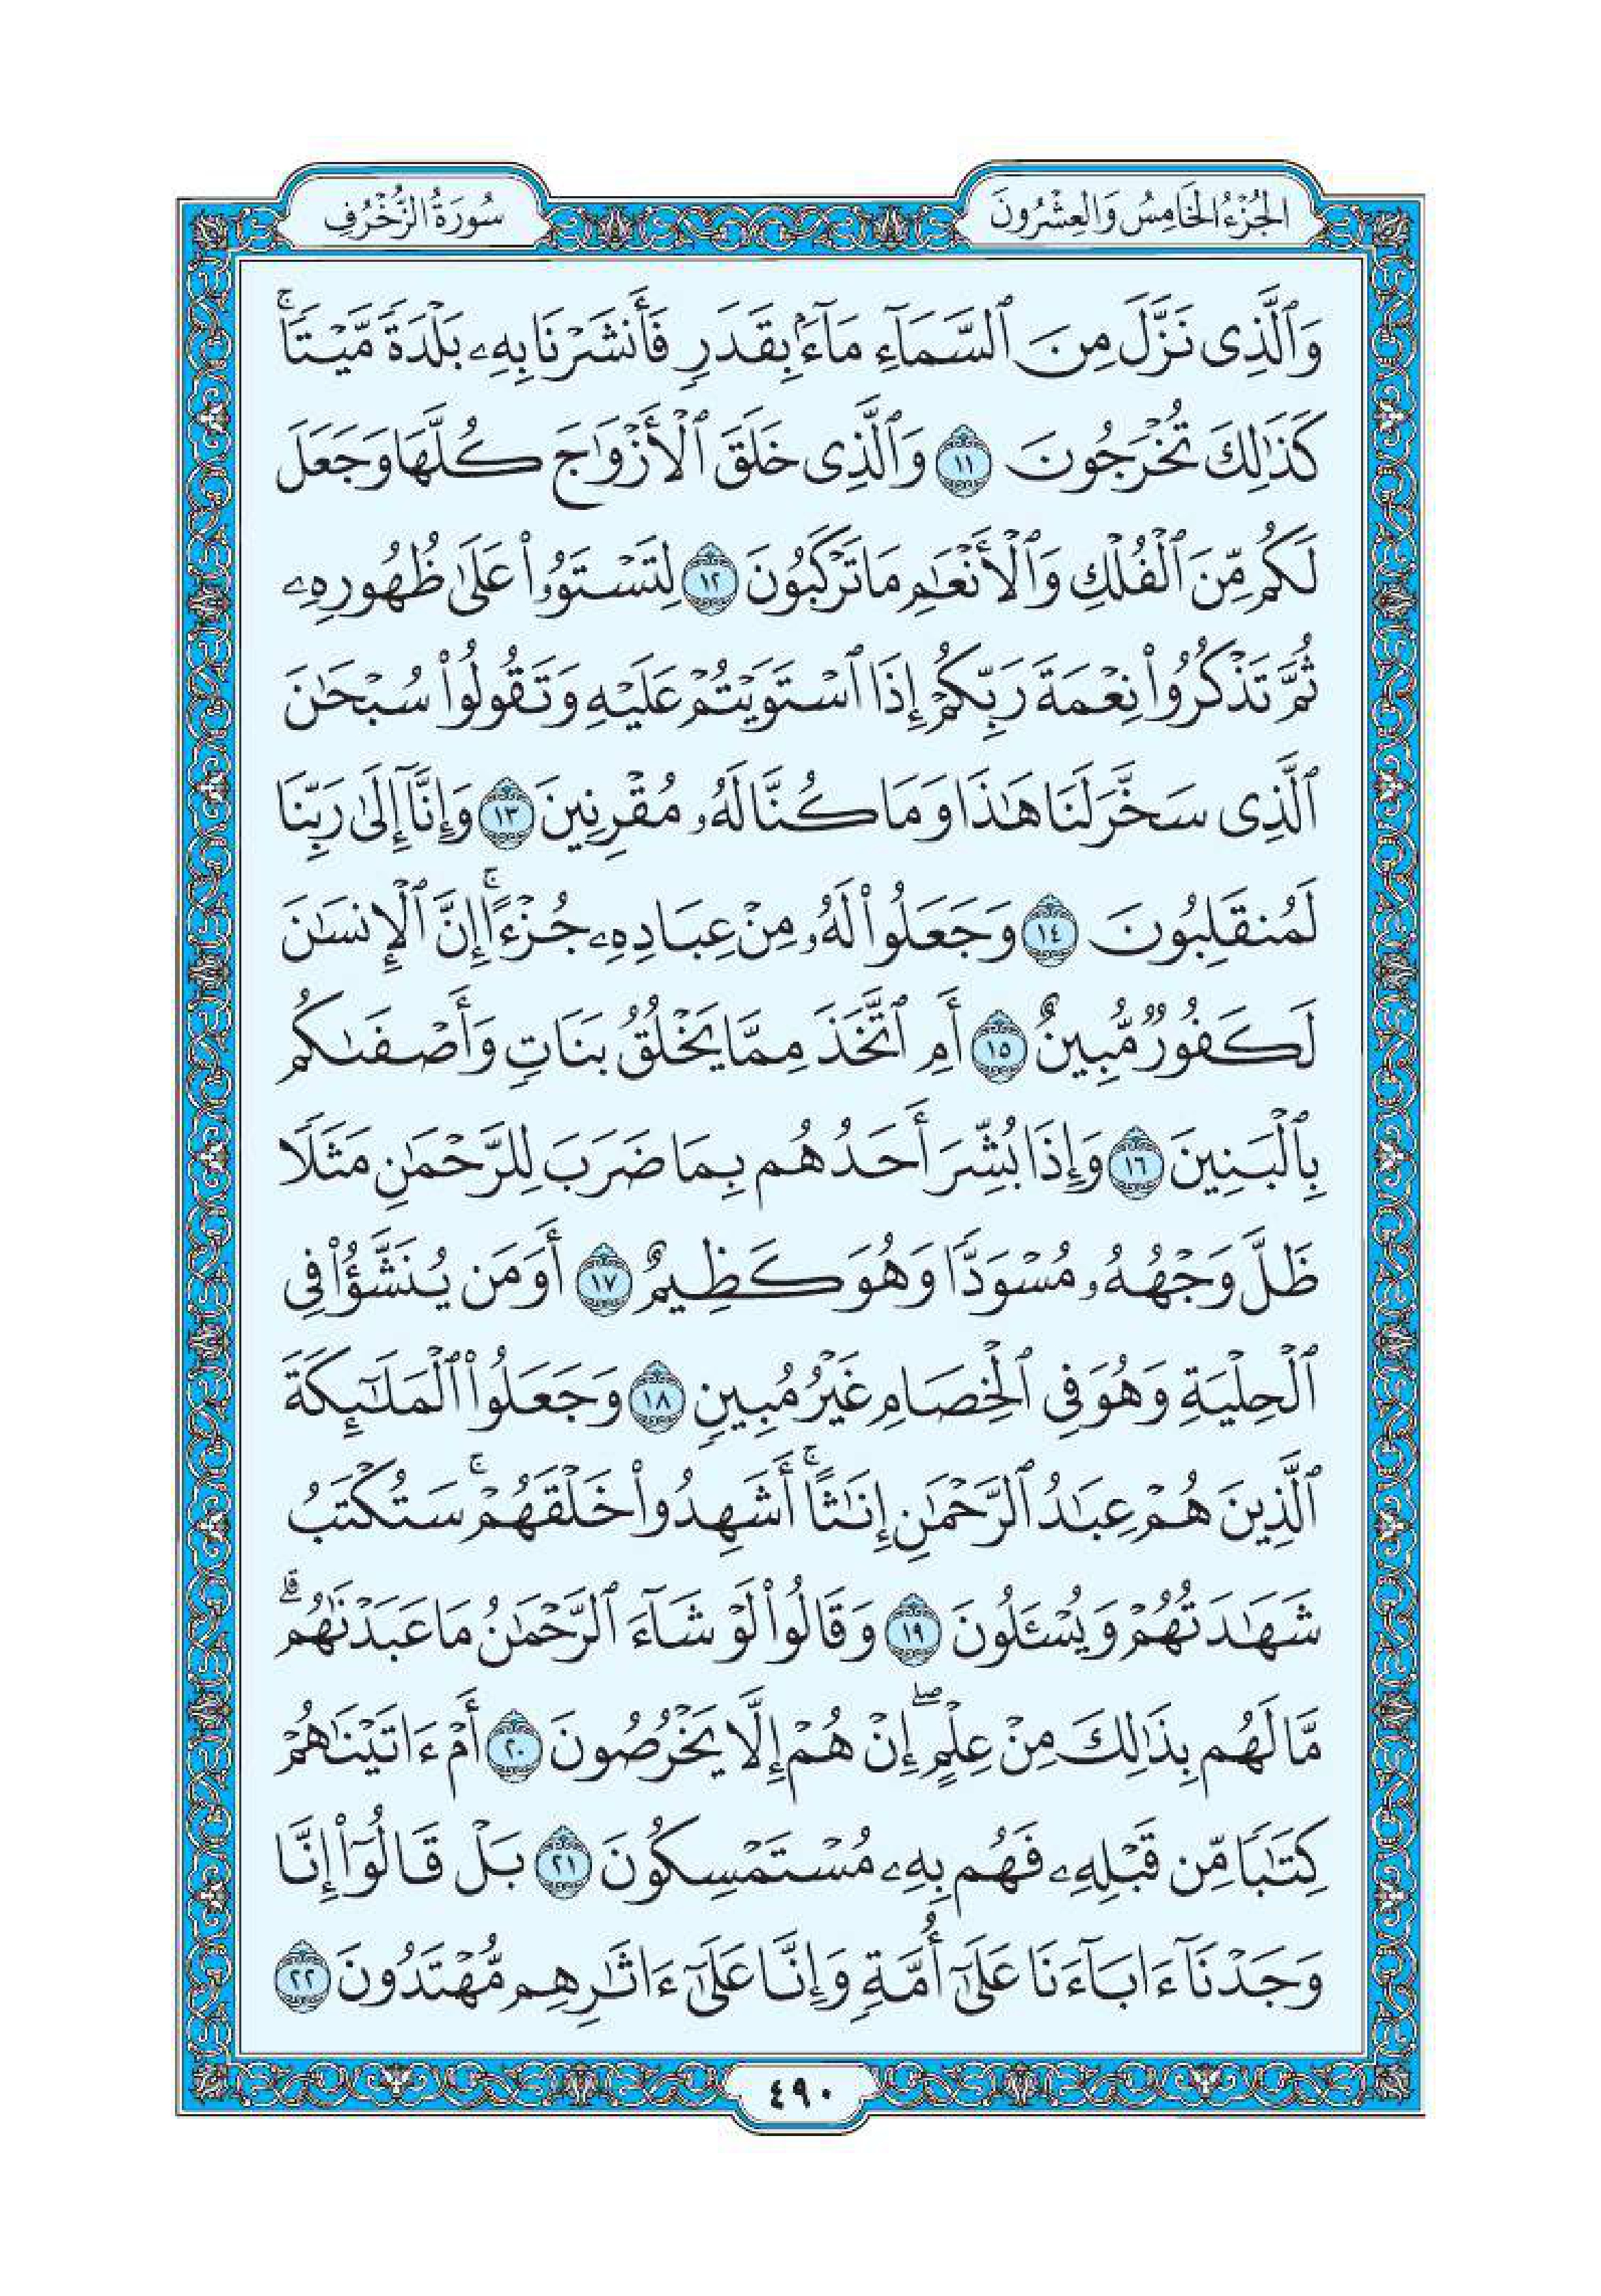 الجُزْءُ الخَامِسُ وَالعِشْرُونَ
سُورَةُ الزُّخْرُفِ
وَٱلَّذِى نَزَّلَ مِنَ ٱلسَّمَآءِ مَآءَۢ بِقَدَرٍ فَأَنشَرْنَا بِهِۦ بَلْدَةً مَّيْتًاۚ
كَذَٰلِكَ تُخْرَجُونَ ۝١١ وَٱلَّذِى خَلَقَ ٱلْأَزْوَٰجَ كُلَّهَا وَجَعَلَ
لَكُم مِّنَ ٱلْفُلْكِ وَٱلْأَنْعَٰمِ مَا تَرْكَبُونَ ۝١٢ لِتَسْتَوُۥا۟ عَلَىٰ ظُهُورِهِۦ
ثُمَّ تَذْكُرُوا۟ نِعْمَةَ رَبِّكُمْ إِذَا ٱسْتَوَيْتُمْ عَلَيْهِ وَتَقُولُوا۟ سُبْحَٰنَ
ٱلَّذِى سَخَّرَ لَنَا هَٰذَا وَمَا كُنَّا لَهُۥ مُقْرِنِينَ ۝١٣ وَإِنَّآ إِلَىٰ رَبِّنَا
لَمُنقَلِبُونَ ۝١٤ وَجَعَلُوا۟ لَهُۥ مِنْ عِبَادِهِۦ جُزْءًاۚ إِنَّ ٱلْإِنسَٰنَ
لَكَفُورٌ مُّبِينٌ ۝١٥ أَمِ ٱتَّخَذَ مِمَّا يَخْلُقُ بَنَاتٍ وَأَصْفَىٰكُم
بِٱلْبَنِينَ ۝١٦ وَإِذَا بُشِّرَ أَحَدُهُم بِمَا ضَرَبَ لِلرَّحْمَٰنِ مَثَلًا
ظَلَّ وَجْهُهُۥ مُسْوَدًّا وَهُوَ كَظِيمٌ ۝١٧ أَوَمَن يُنَشَّؤُا۟ فِى
ٱلْحِلْيَةِ وَهُوَ فِى ٱلْخِصَامِ غَيْرُ مُبِينٍ ۝١٨ وَجَعَلُوا۟ ٱلْمَلَٰٓئِكَةَ
ٱلَّذِينَ هُمْ عِبَٰدُ ٱلرَّحْمَٰنِ إِنَٰثًاۚ أَشَهِدُوا۟ خَلْقَهُمْۚ سَتُكْتَبُ
شَهَٰدَتُهُمْ وَيُسْـَٔلُونَ ۝١٩ وَقَالُوا۟ لَوْ شَآءَ ٱلرَّحْمَٰنُ مَا عَبَدْنَٰهُمۗ
مَّا لَهُم بِذَٰلِكَ مِنْ عِلْمٍۖ إِنْ هُمْ إِلَّا يَخْرُصُونَ ۝٢٠ أَمْ ءَاتَيْنَٰهُمْ
كِتَٰبًا مِّن قَبْلِهِۦ فَهُم بِهِۦ مُسْتَمْسِكُونَ ۝٢١ بَلْ قَالُوٓا۟ إِنَّا
وَجَدْنَآ ءَابَآءَنَا عَلَىٰٓ أُمَّةٍ وَإِنَّا عَلَىٰٓ ءَاثَٰرِهِم مُّهْتَدُونَ ۝٢٢
٤٩٠